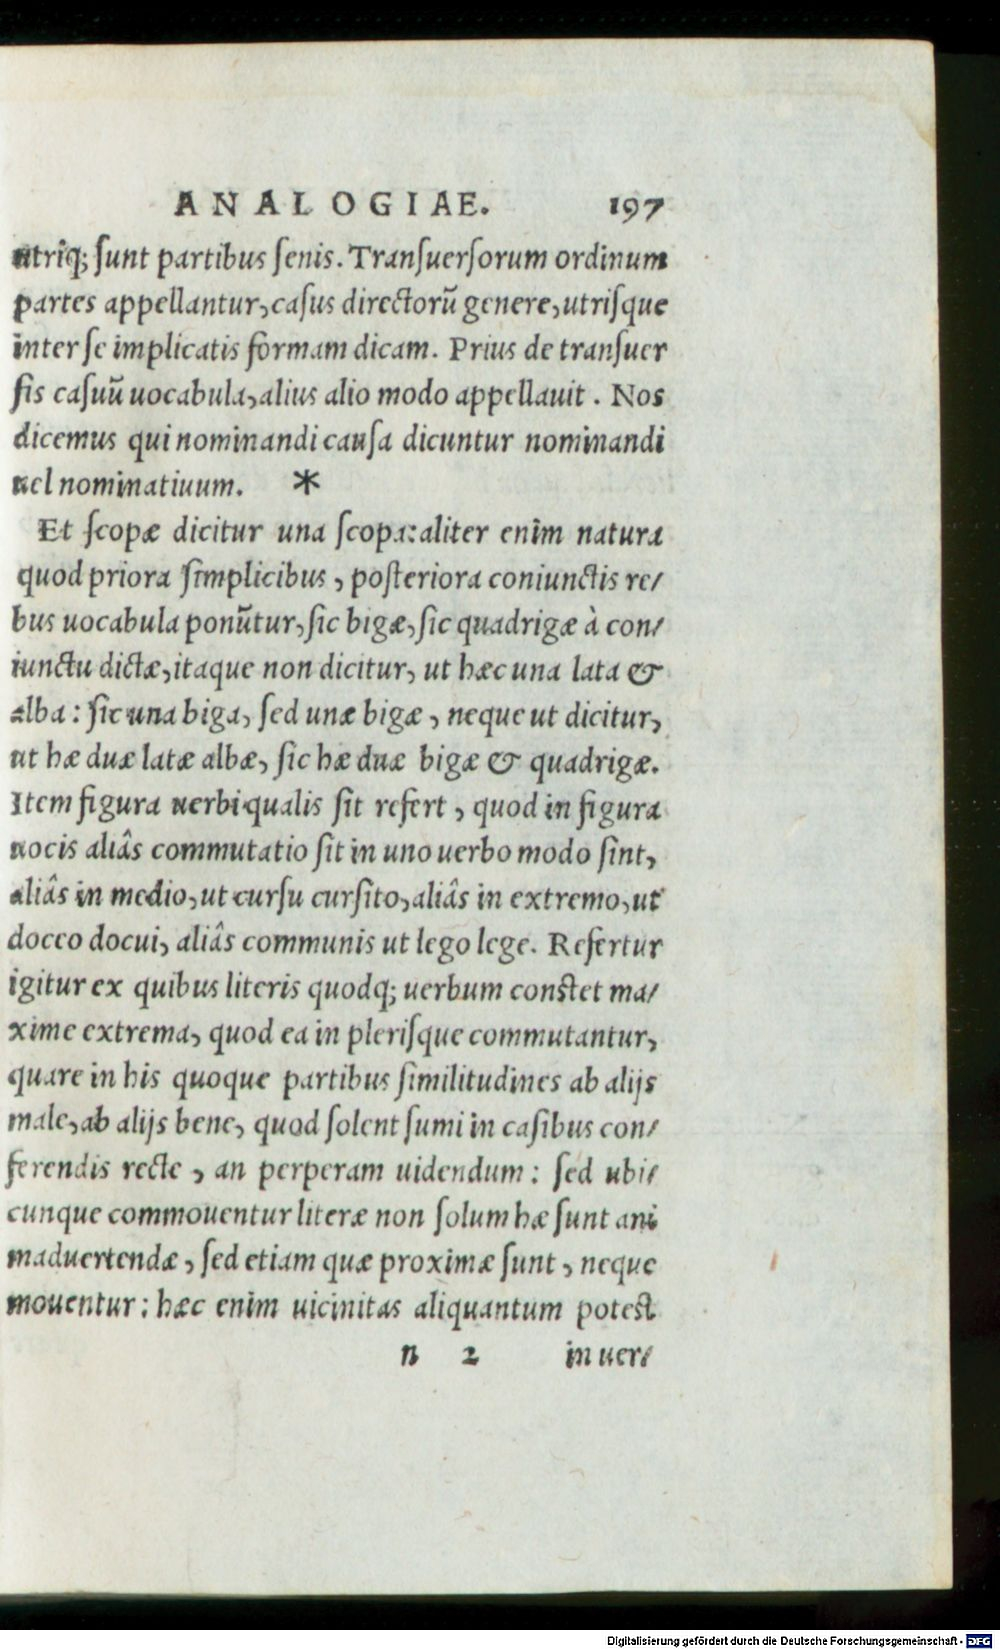 ANALOGIAE. 197
utriq; ſunt partibus ſenis. Tranſuerſorum ordinum
partes appellantur, caſus directorũ genere, utriſque
inter ſe implicatis formam dicam. Prius de tranſuer
ſis caſuũ uocabula, alius alio modo appellauit. Nos
dicemus qui nominandi cauſa dicuntur nominandi
uel nominatiuum. *
Et ſcopæ dicitur una ſcopa: aliter enim natura
quod priora ſimplicibus, poſteriora coniunctis re/
bus uocabula ponũtur, ſic bigæ, ſic quadrigæ à con/
iunctu dictæ, itaque non dicitur, ut hæc una lata &
alba: ſic una biga, ſed unæ bigæ, neque ut dicitur,
ut hæ duæ latæ albæ, ſic hæ duæ bigæ & quadrigæ.
Item figura uerbi qualis ſit refert, quod in figura
uocis aliâs commutatio ſit in uno uerbo modo ſint,
aliâs in medio, ut curſu curſito, aliâs in extremo, ut
doceo docui, aliâs communis ut lego lege. Refertur
igitur ex quibus literis quodq; uerbum conſtet ma/
xime extrema, quod ea in pleriſque commutantur,
quare in his quoque partibus ſimilitudines ab alijs
male, ab alijs bene, quod ſolent ſumi in caſibus con/
ferendis recte, an perperam uidendum: ſed ubi/
cunque commouentur literæ non ſolum hæ ſunt ani
maduertendæ, ſed etiam quæ proximæ ſunt, neque
mouentur: hæc enim uicinitas aliquantum poteſt
n 2 in uer/
Digitalisierung gefördert durch die Deutsche Forschungsgemeinschaft - DFG